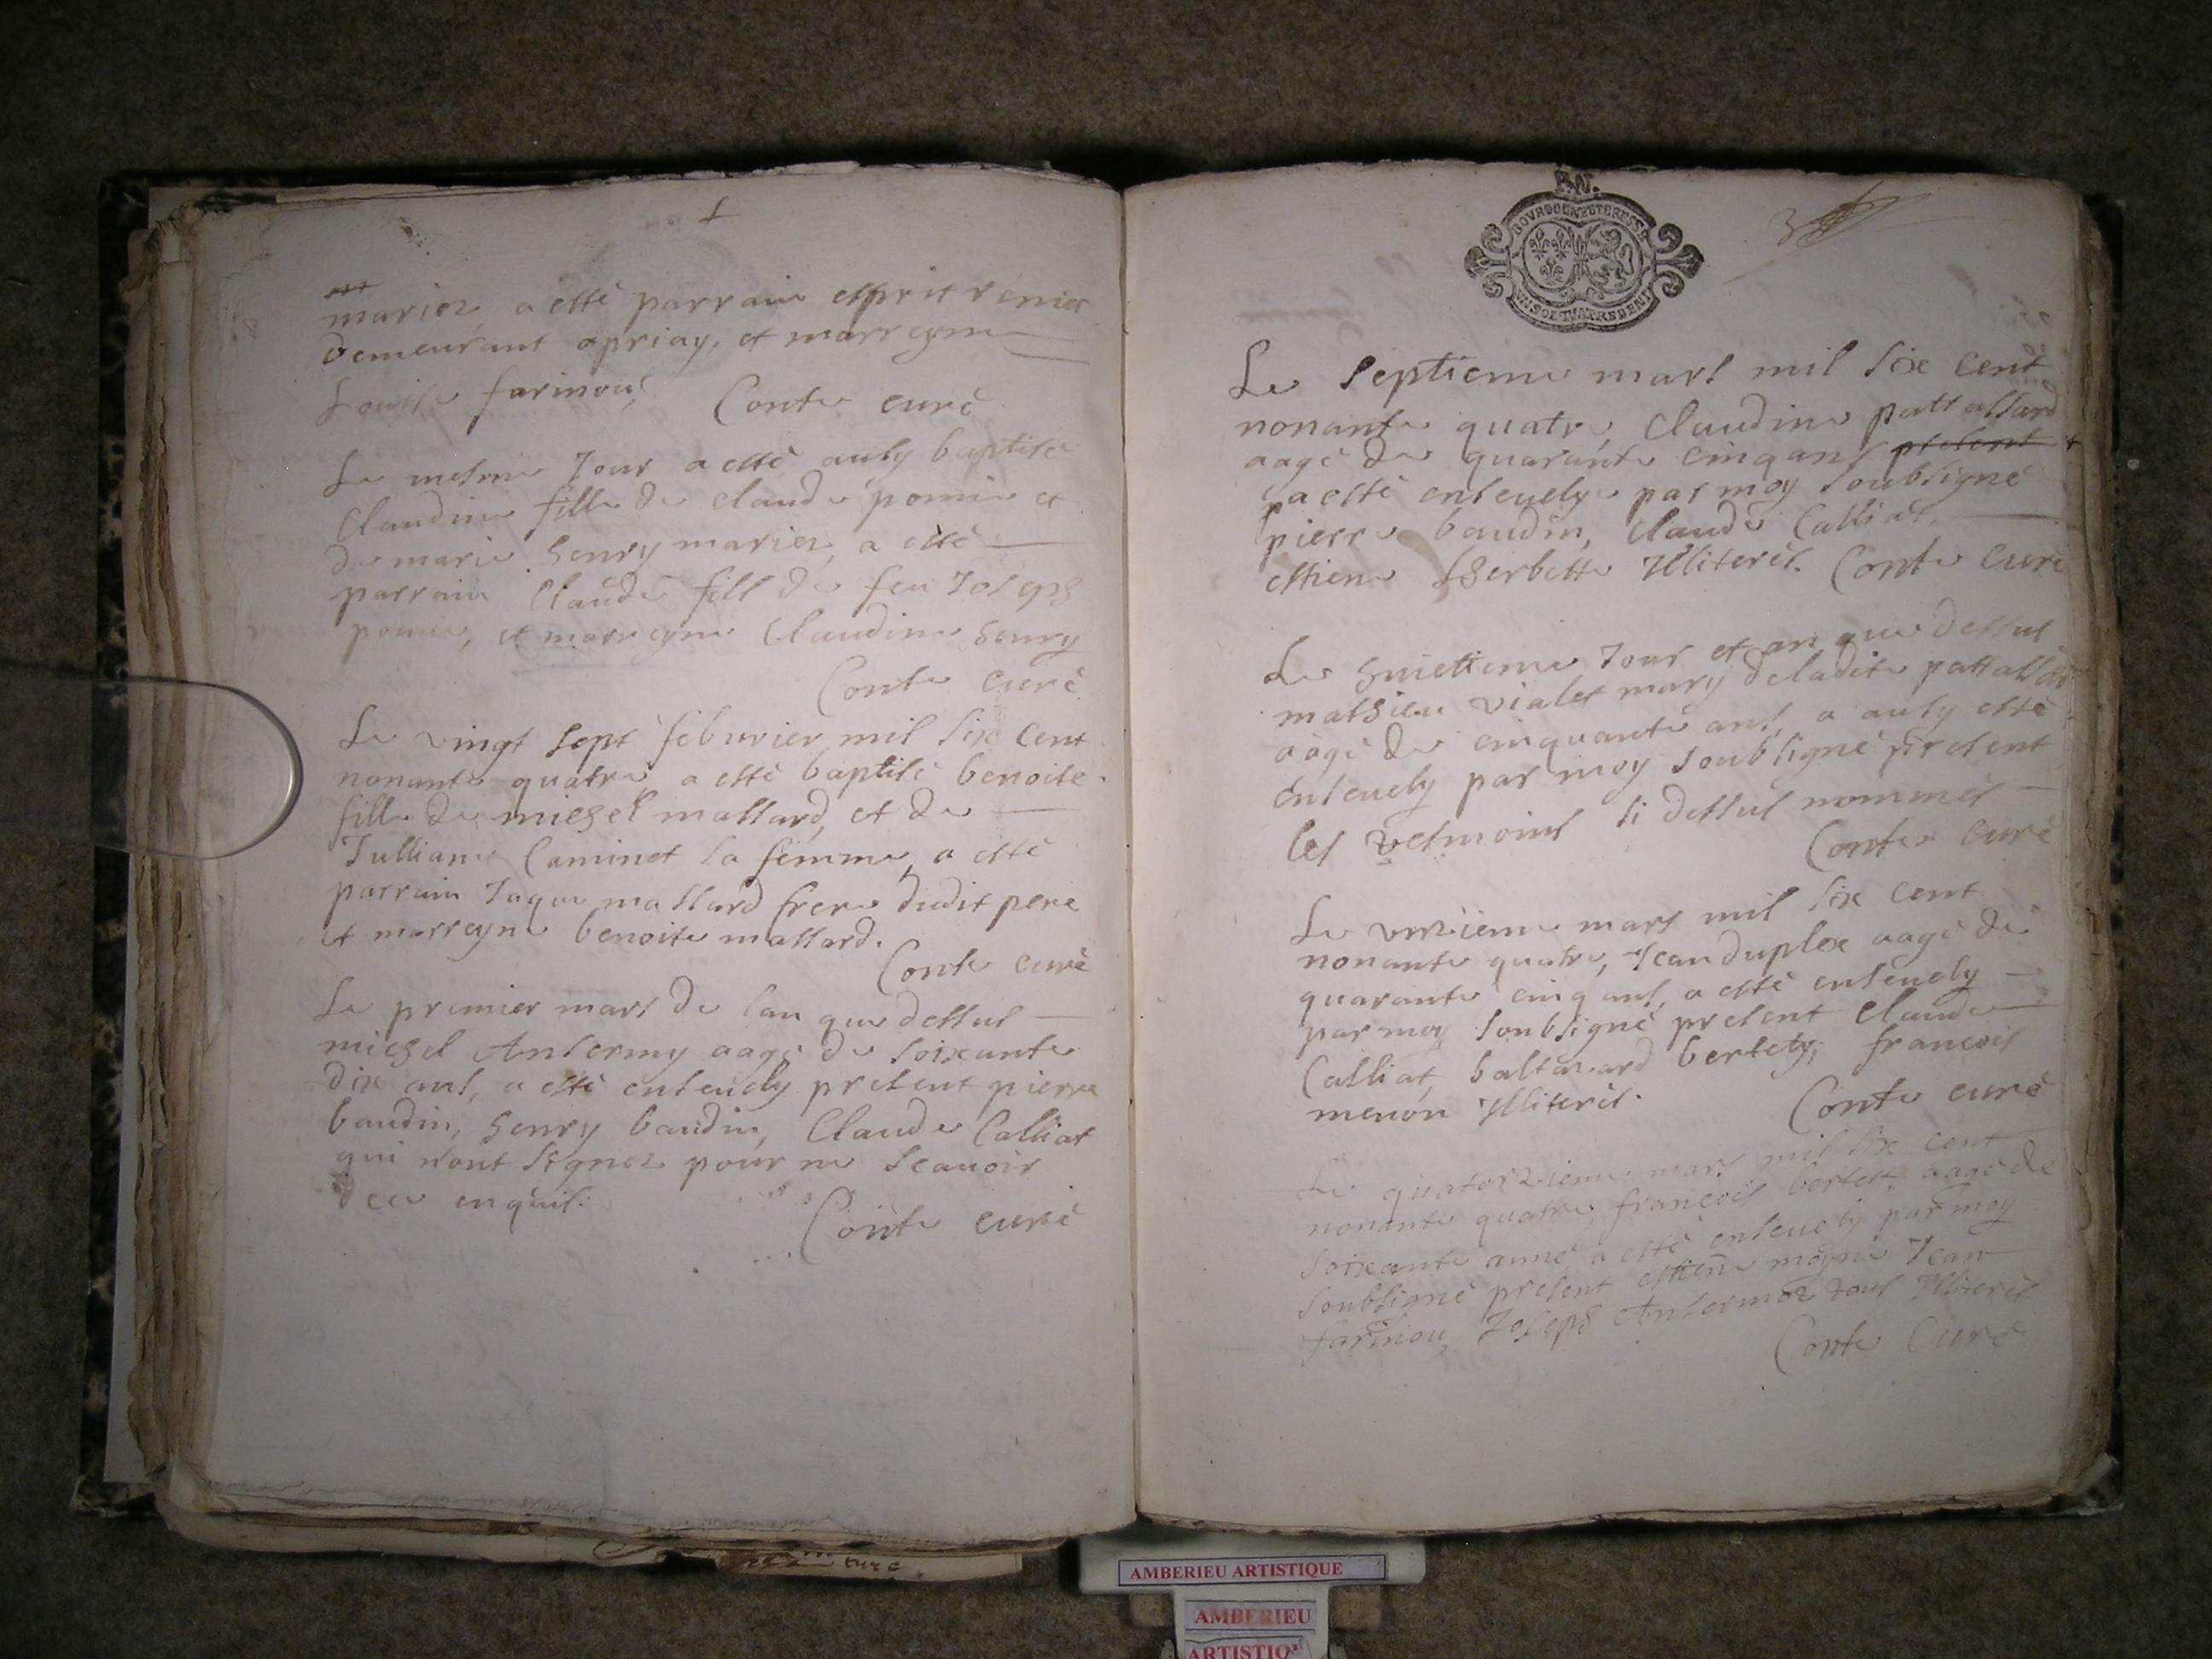 mariez, a esté parrain esprit venier
demeurant a priay, et marreyne
Louise farinou, Conte curé
Le mesme Jour a esté aussy baptisé
Claudine fille de claude pomie et
de marie henry mariez, a esté
parrain Claude fill de feu Joseph
pomie, et marreyne Claudine henry
Conte curé
Le vingt sept feburier mil six cent
nonante quatre a esté baptisé benoite
fille de michel massard, et de
Julliane Caminet sa femme, a esté
parrain Jaque massard frere dudit pere
et marreyne benoite massard.
Conte curé
Le premier mars de lan que dessus
michel Ansermy aagé de soixante
dix ans, a esté enseuely present pierre
baudin, henry baudin, Claude Calliat
qui n'ont signez pour ne scauoir
de ce enquis.
Conte curé
BOVRGOGNE ET BRESSE
3
Le septieme mars mil six cent
nonante quatre, Claudine pattassard
aagé de quarante cinq ans present
a esté enseuelye par moy soubsigné
pierre baudin, Claude Calliat,
estiene herbette Illiterés. Conte Curé
Le huictieme Jour et an que dessus
mathieu vialet mary de ladite pattassard
aagé de cinquante ans, a aussy esté
enseuely par moy soubsigné present
les tesmoins si dessus nommés
Conte Curé
Le unzieme mars mil six cent
nonante quatre, Jean duplex aagé de
quarante cinq ans, a esté enseuely
par moy soubsigné present Claude
Calliat, baltazard bertety, francois
menon Illiterés.
Conte curé
Le quatorzieme mars mil six cent
nonante quatre, françois bertet, aagé de
soixante anné, a esté enseuely par moy
soubsigné present estiene moyne Jean
farinou, Joseph Ansermoz tous Illiterés
Conte Curé
curé
AMBERIEU ARTISTIQUE
AMBERIEU
ARTISTIQ